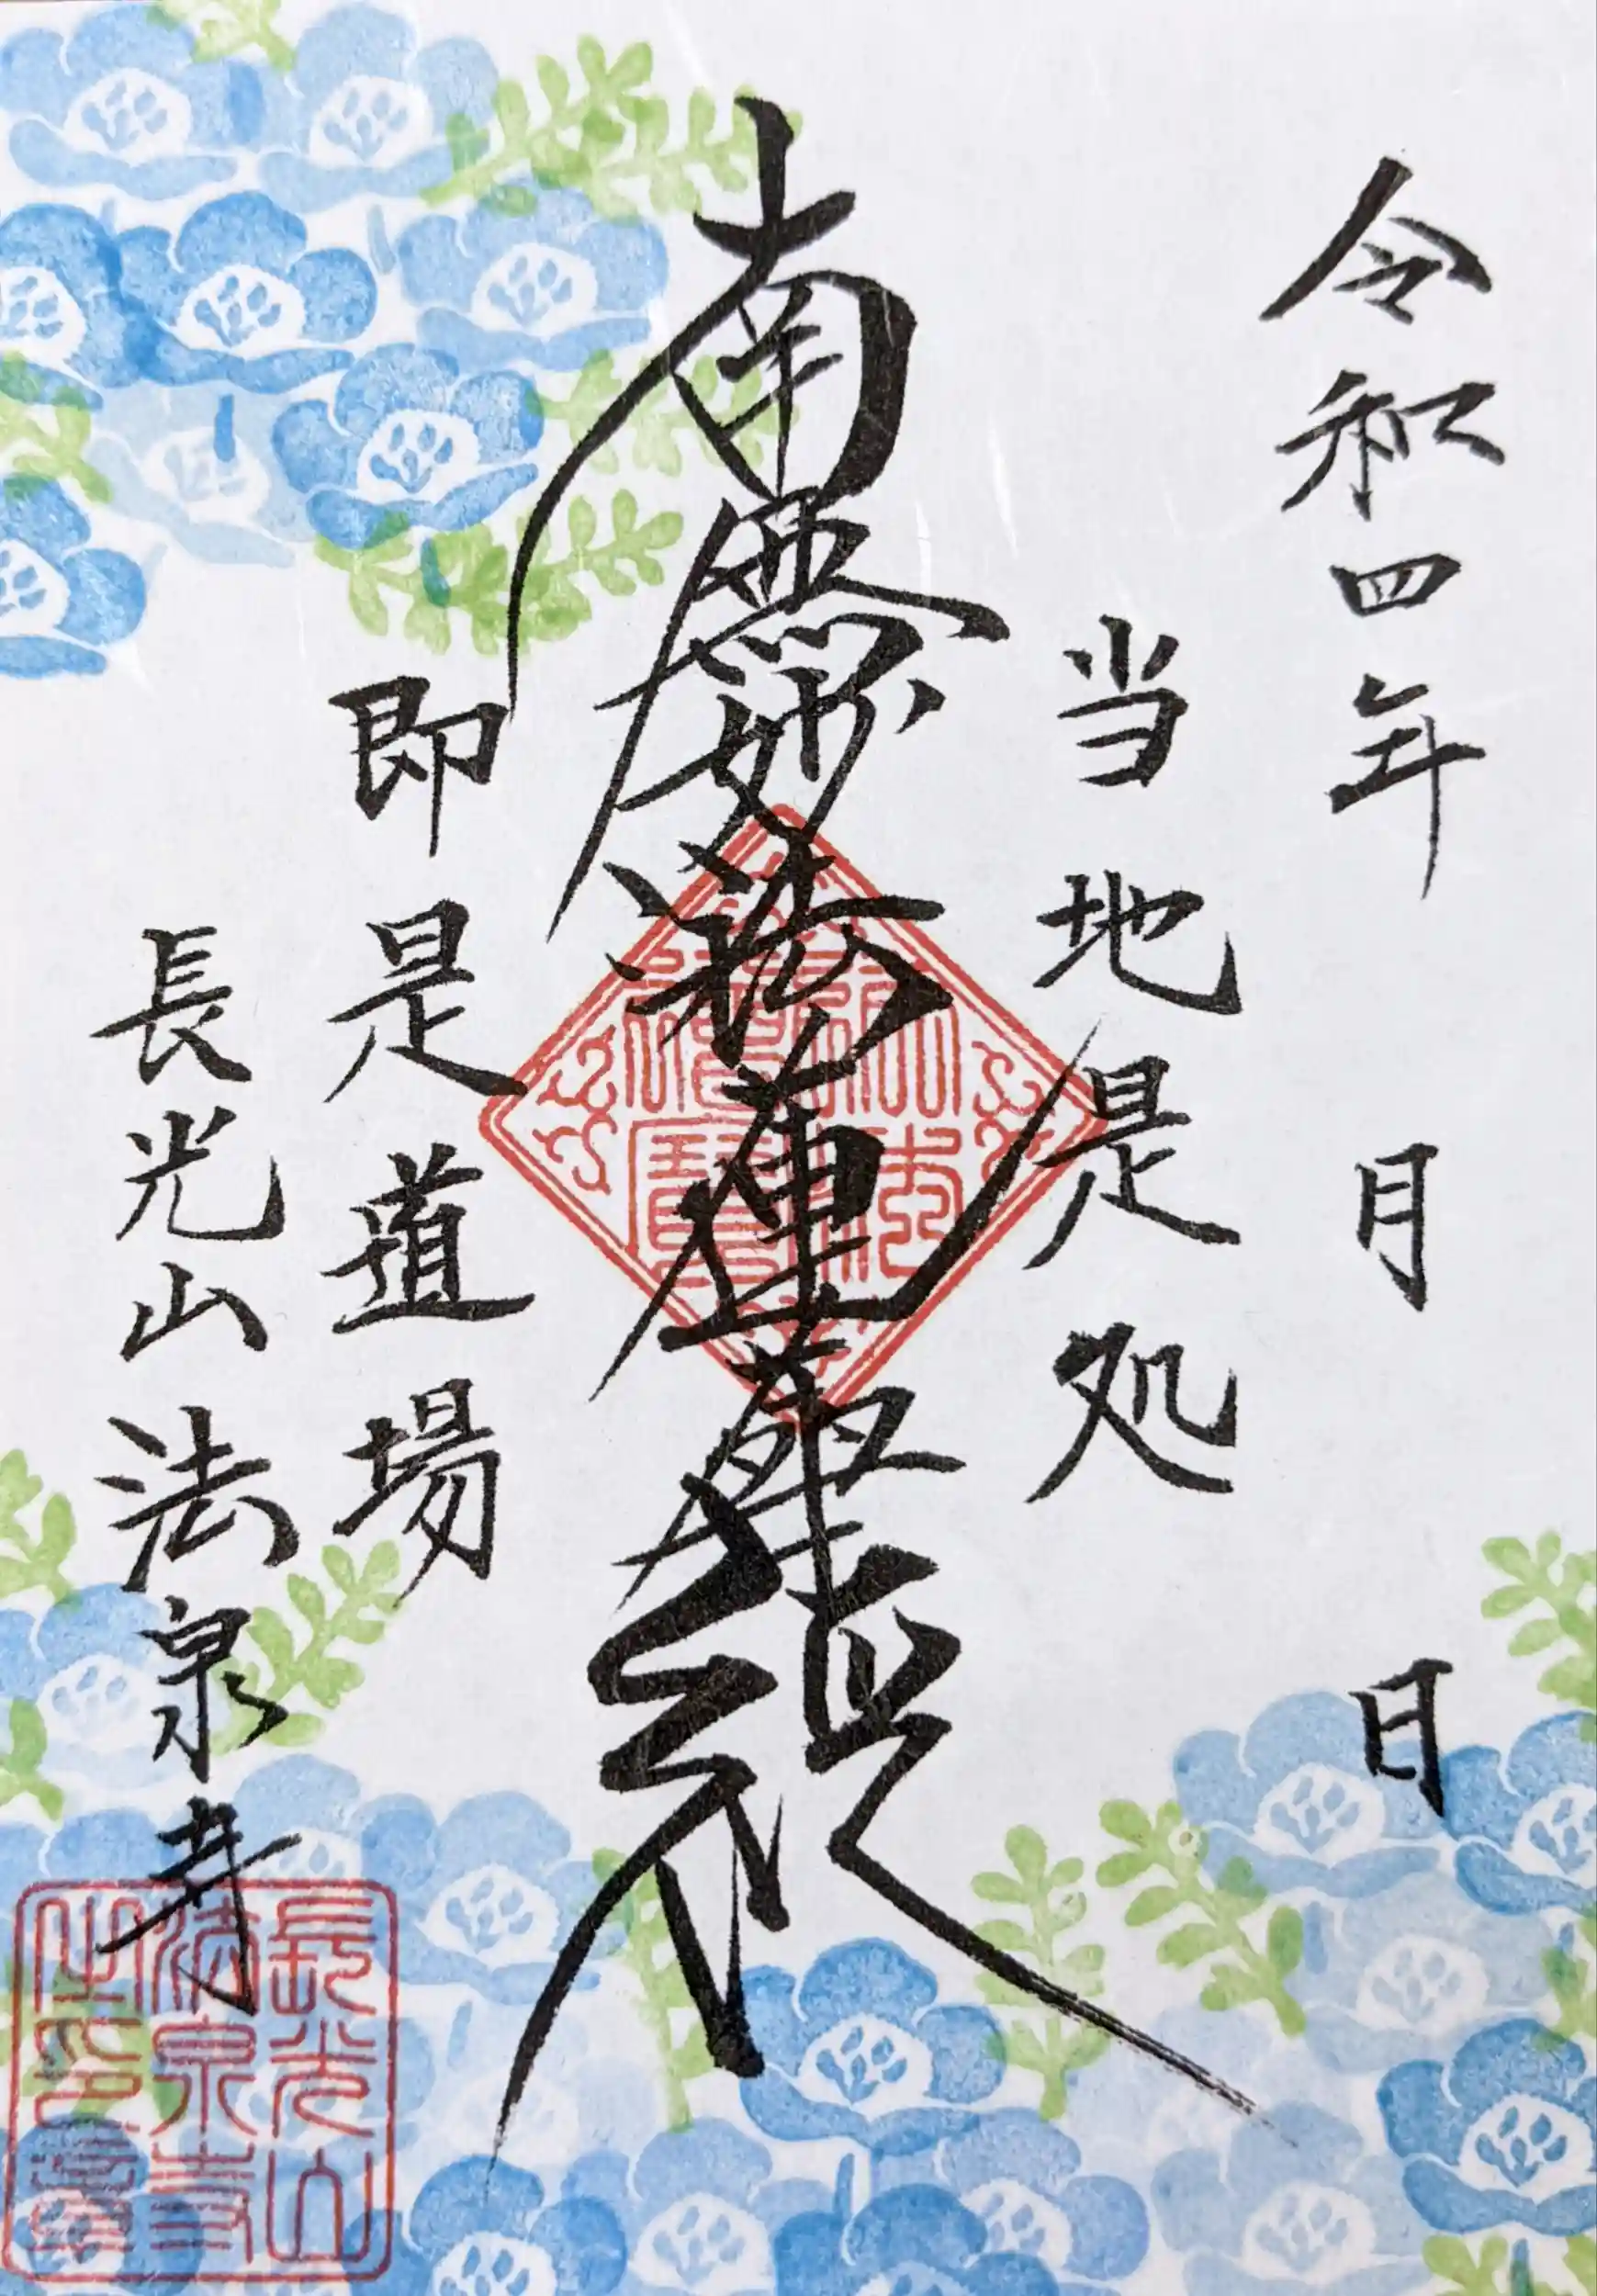 令和四年 月 日
当地是処
南無妙法蓮華経
即是道場
長光山法泉寺
長光山
法泉寺
之印章